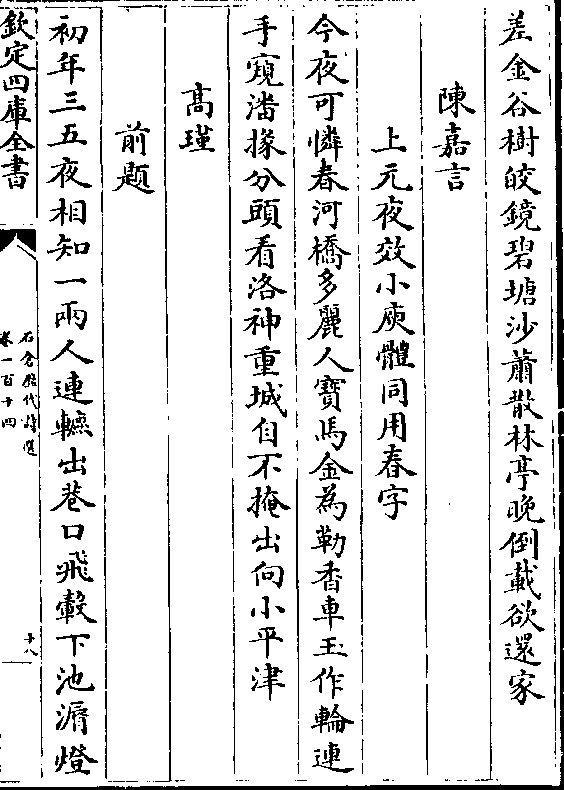 差金谷樹皎鏡碧塘沙蕭散林亭晚倒載欲還家
陳嘉言
上元夜效小庾體同用春字
今夜可憐春河橋多麗人寶馬金為勒香車玉作輪連
手窺潘掾分頭看洛神重城自不掩出向小平津
髙瑾
前題
初年三五夜相知一兩人連轣出巷口飛轂下池漘燈
欽定四庫全書
石倉歷代詩選
卷一百十四
十八